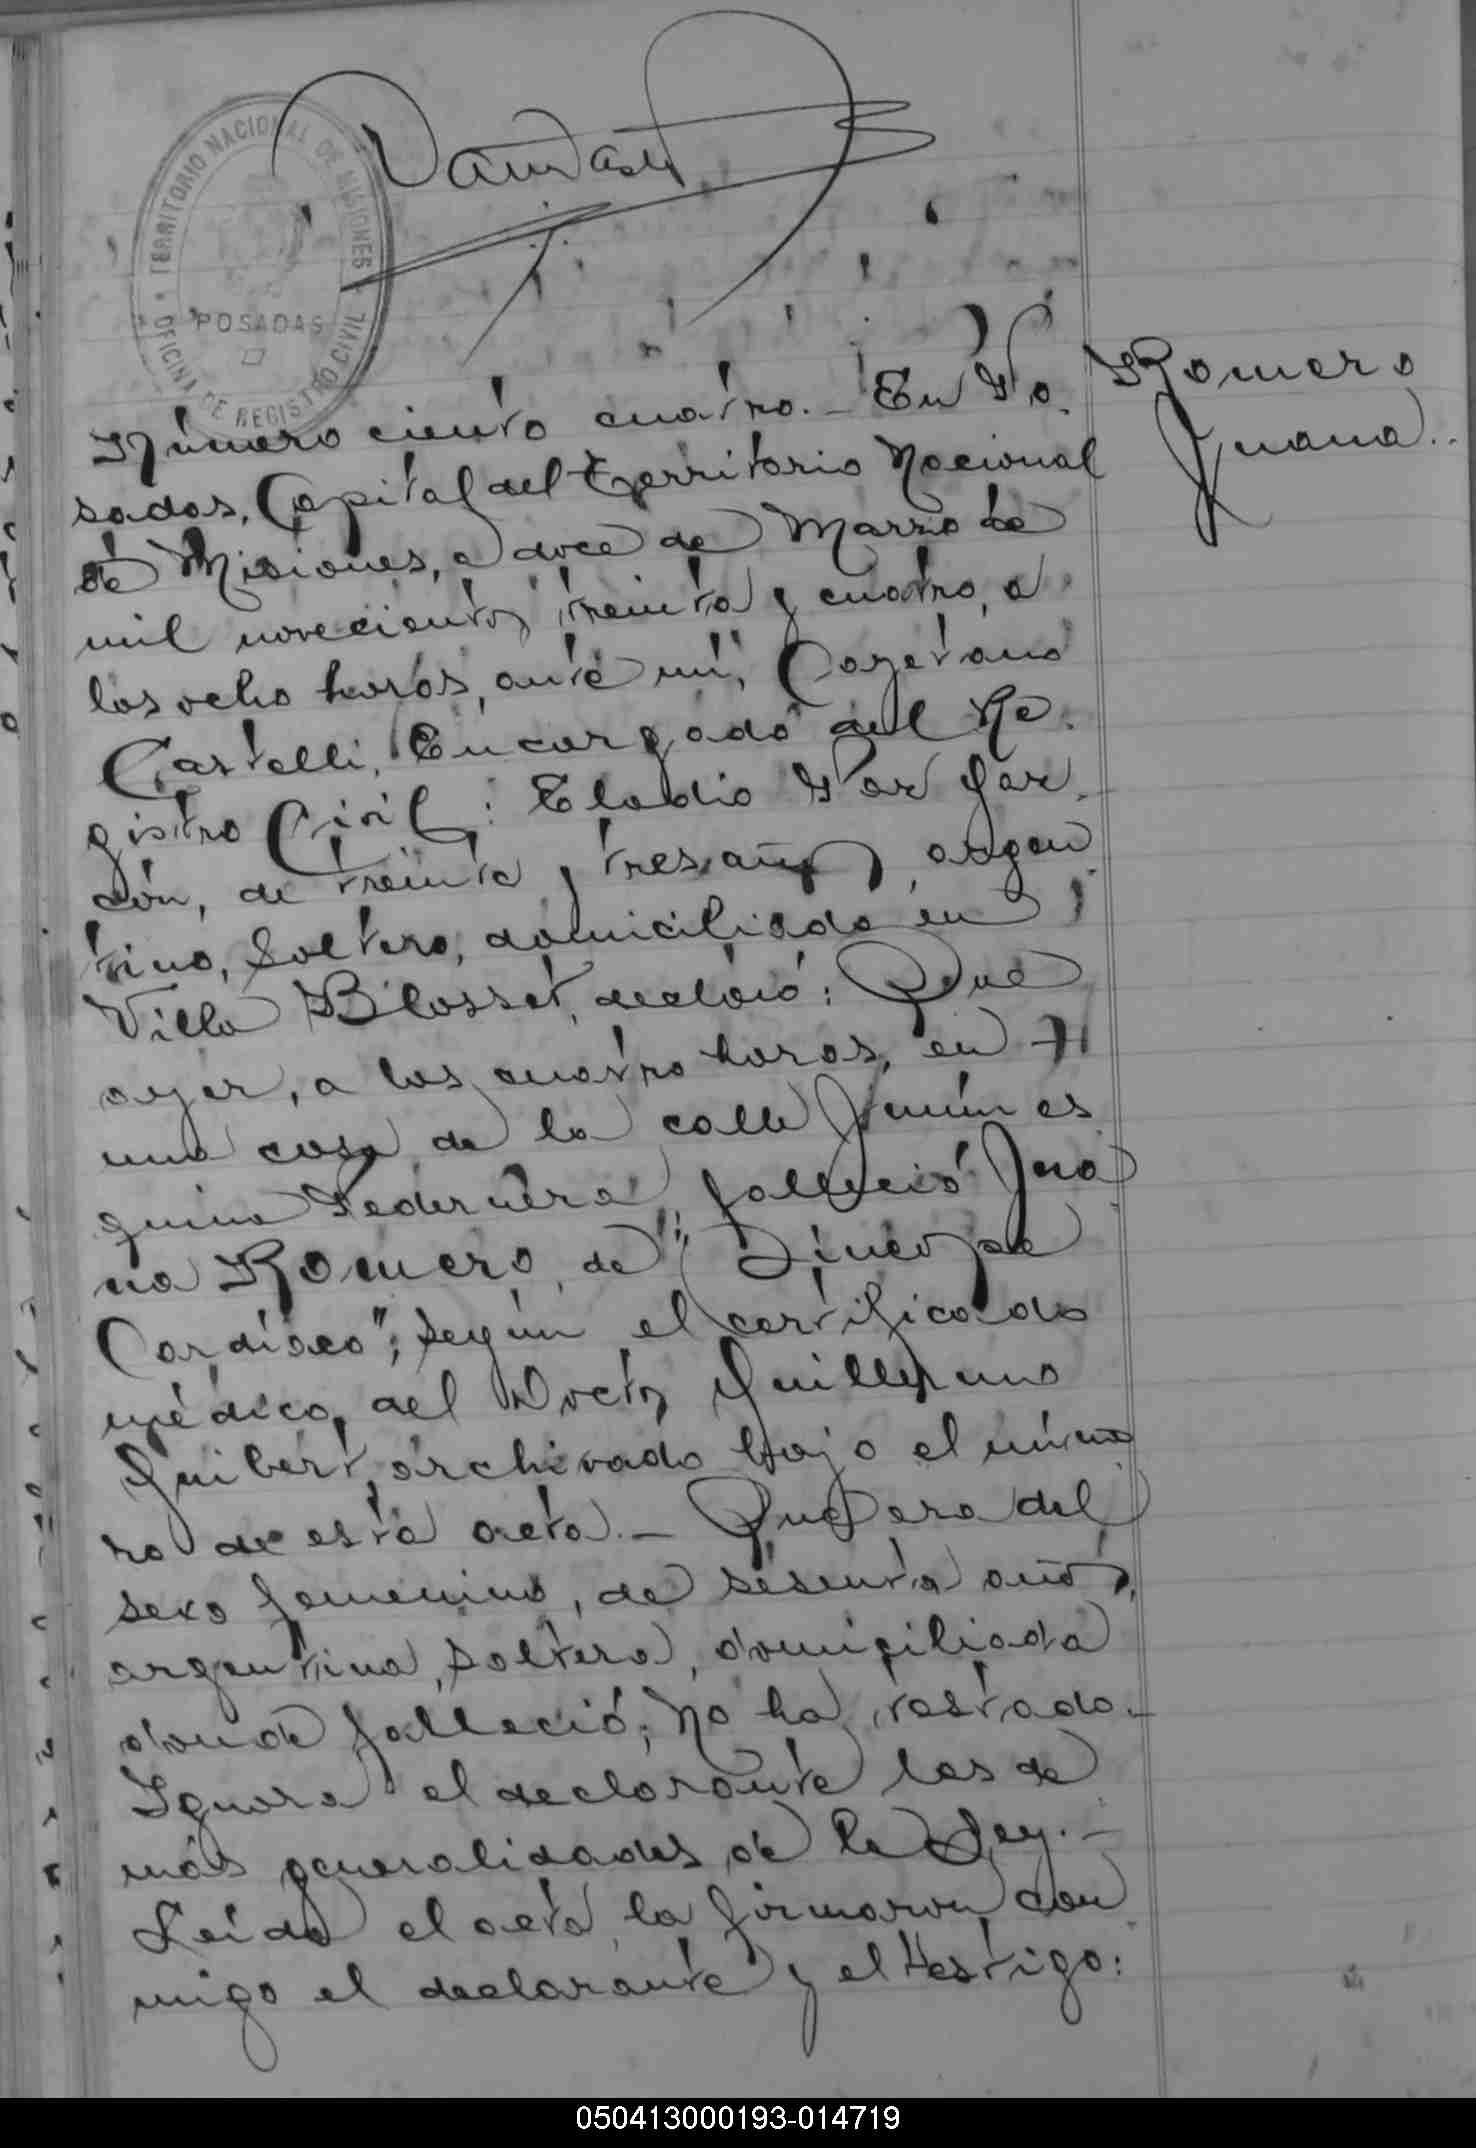 TERRITORIO NACIONAL DE MISIONES
POSADAS
OFICINA DE REGISTRO CIVIL
Romero
Juana..
Número ciento cuatro.- En Po-
sadas, Capital del Territorio Nacional
de Misiones, a doce de Marzo de
mil novecientos treinta y cuatro, a
las ocho horas, ante mi, Cayetano
Castelli, Encargado del Re-
gistro Civil: Eladio Par
dón, de treinta y tres años, argen-
tino, soltero, domiciliado en
Villa Blosset, declaró: Que
ayer, a las cuatro horas, en
una casa de la calle Junín es
quina Pedernera, falleció Jua
na Romero, de "Síncope
Cardíaco"; según el certificado
médico, del Doctor Guillermo
Guibert, archivado bajo el núme
ro de esta acta.- Que era del
sexo femenino, de sesenta años,
argentina, soltera, domiciliada
donde falleció; No ha testado.-
Ignora el declarante las de
más generalidades de la Ley.-
Leída el acta, la firmaron con
migo el declarante y el testigo:
050413000193-014719